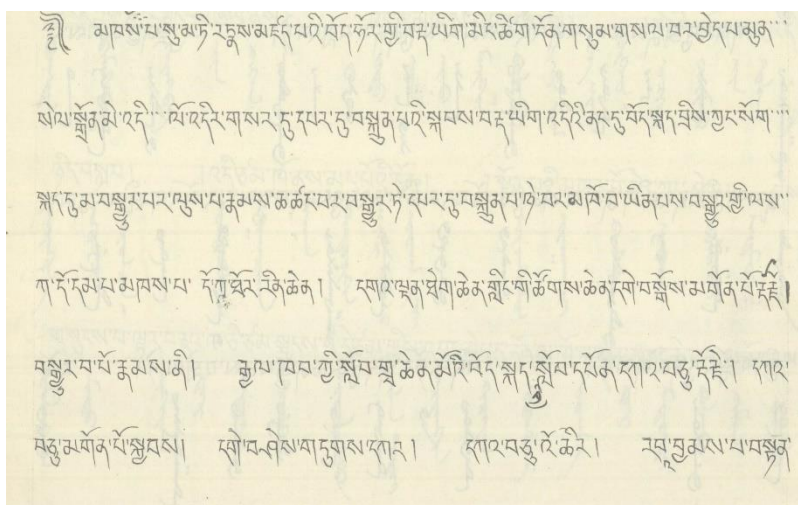 ༄༅། །མཁས་པ་སུ་མ་ཏི་རཏྣས་མཛད་པའི་བོད་ཧོར་གྱི་བརྡ་ཡིག་མིང་ཚིག་དོན་གསུམ་གསལ་བར་བྱེད་པ་མུན་
སེལ་སྒྲོན་མེ་འདི་ ལོ་འདིར་གསར་དུ་དཔར་དུ་བསྐྲུན་པའི་སྐབས་བརྡ་ཡིག་འདིའི་ནང་དུ་བོད་སྐད་བྲིས་ཀྱང་སོག་
སྐད་དུ་མ་བསྒྱུར་པར་ལུས་པ་རྣམས་ཆ་ཚང་བར་བསྒྱུར་ཏེ་དཔར་དུ་བསྐྲུན་པ་ཉེ་བར་མཁོ་བ་ཡིན་པས་བསྒྱུར་གྱི་ལས་
ཀ་དོ་དམ་པ་མཁས་པ་ དོཀྟཱོར་རིན་ཆེན། དགའ་ལྡན་ཐེག་ཆེན་གླིང་གི་ཚོགས་ཆེན་དགེ་བསྐོས་མགོན་པོ་རྡོ་རྗེ།
བསྒྱུར་བ་པོ་རྣམས་ནི། རྒྱལ་ཁབ་ཀྱི་སློབ་གྲྭ་ཆེན་མོའི་བོད་སྐད་སློབ་དཔོན་དཀའ་བཅུ་རྡོ་རྗེ། དཀའ་
བཅུ་མགོན་པོ་སྐྱབས། དགེ་བཤེས་གདུགས་དཀར། དཀའ་བཅུ་འོ་ཆིར། རབ་འབྱམས་པ་བསྟན་